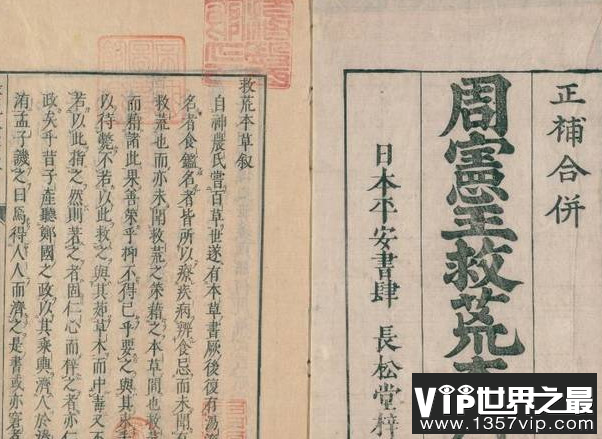 正補合併
周憲王救荒本
日本平安書肆 長松堂梓
救荒本草叙
自神農氏嘗百草世遂有本草書厥後復有湯
名者食鑑名者皆所以療疾病辨食忌而未聞
救荒也而亦未聞救荒之策藉之本草間也
而精諸此果善策乎抑不得已乎要之與其
以待斃不若以此救之與其茹草木而中毒又不
若以此指之然則著之者固仁心而梓之者亦仁
政矣乎昔子產聽鄭國之政以其乘輿濟人於溱
洧孟子譏之曰焉得人人而濟之是書或亦
VIP世界之最
www.1357vip.com